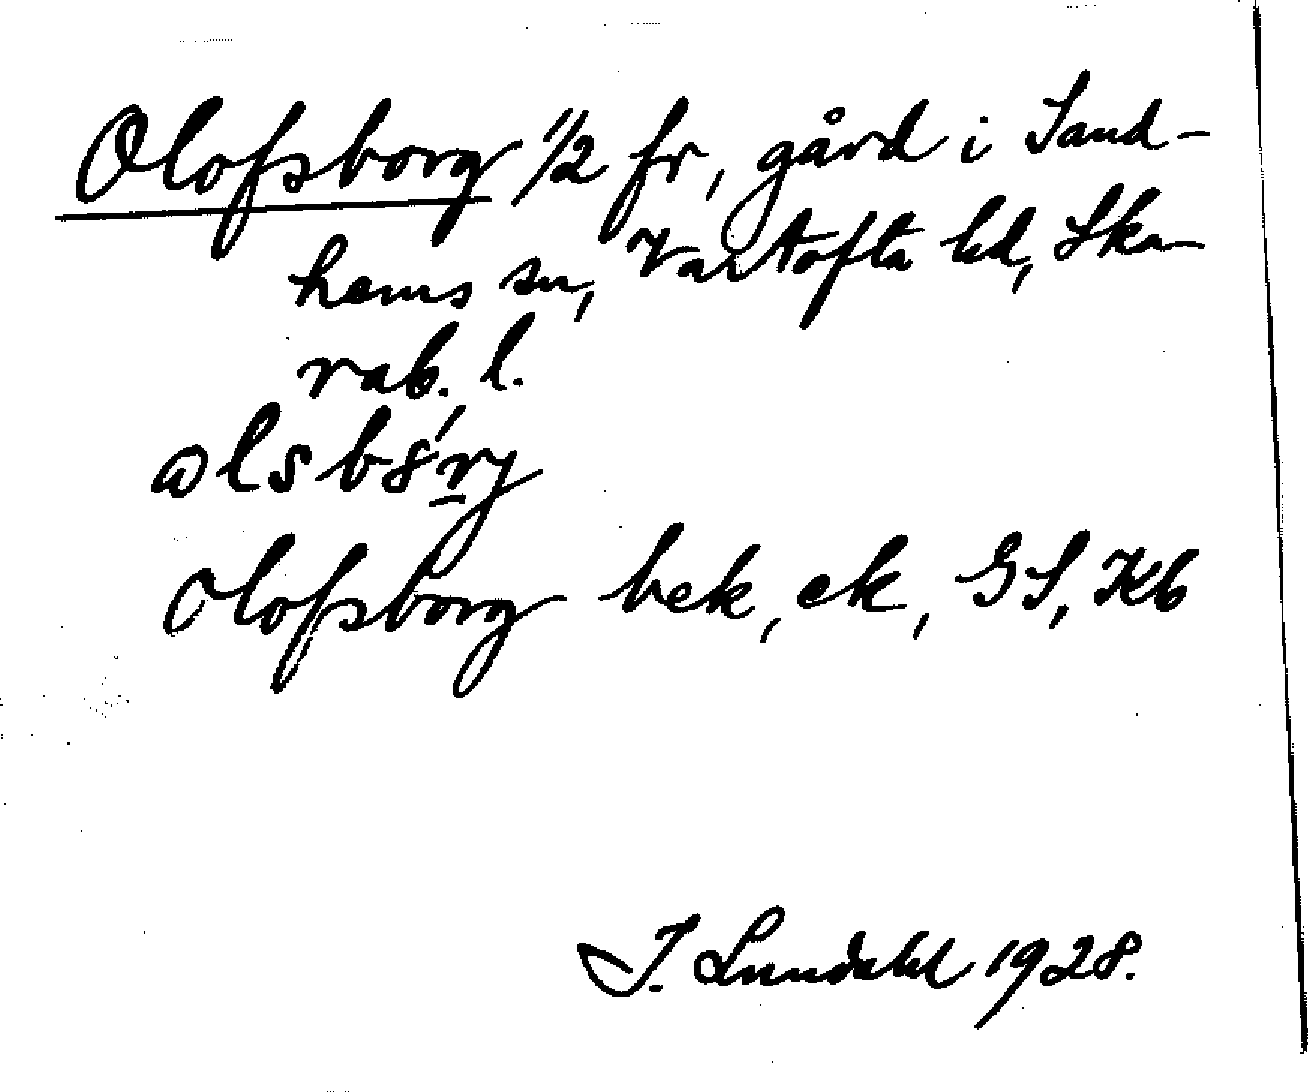 Olofsborg 1/2 fr, gård i Sand-
hems sn, Vartofta hd, Ska-
rab. l.
olsbo̅rj
Olofsborg bek, ek, GS, Kb
I. Lundahl 1928.